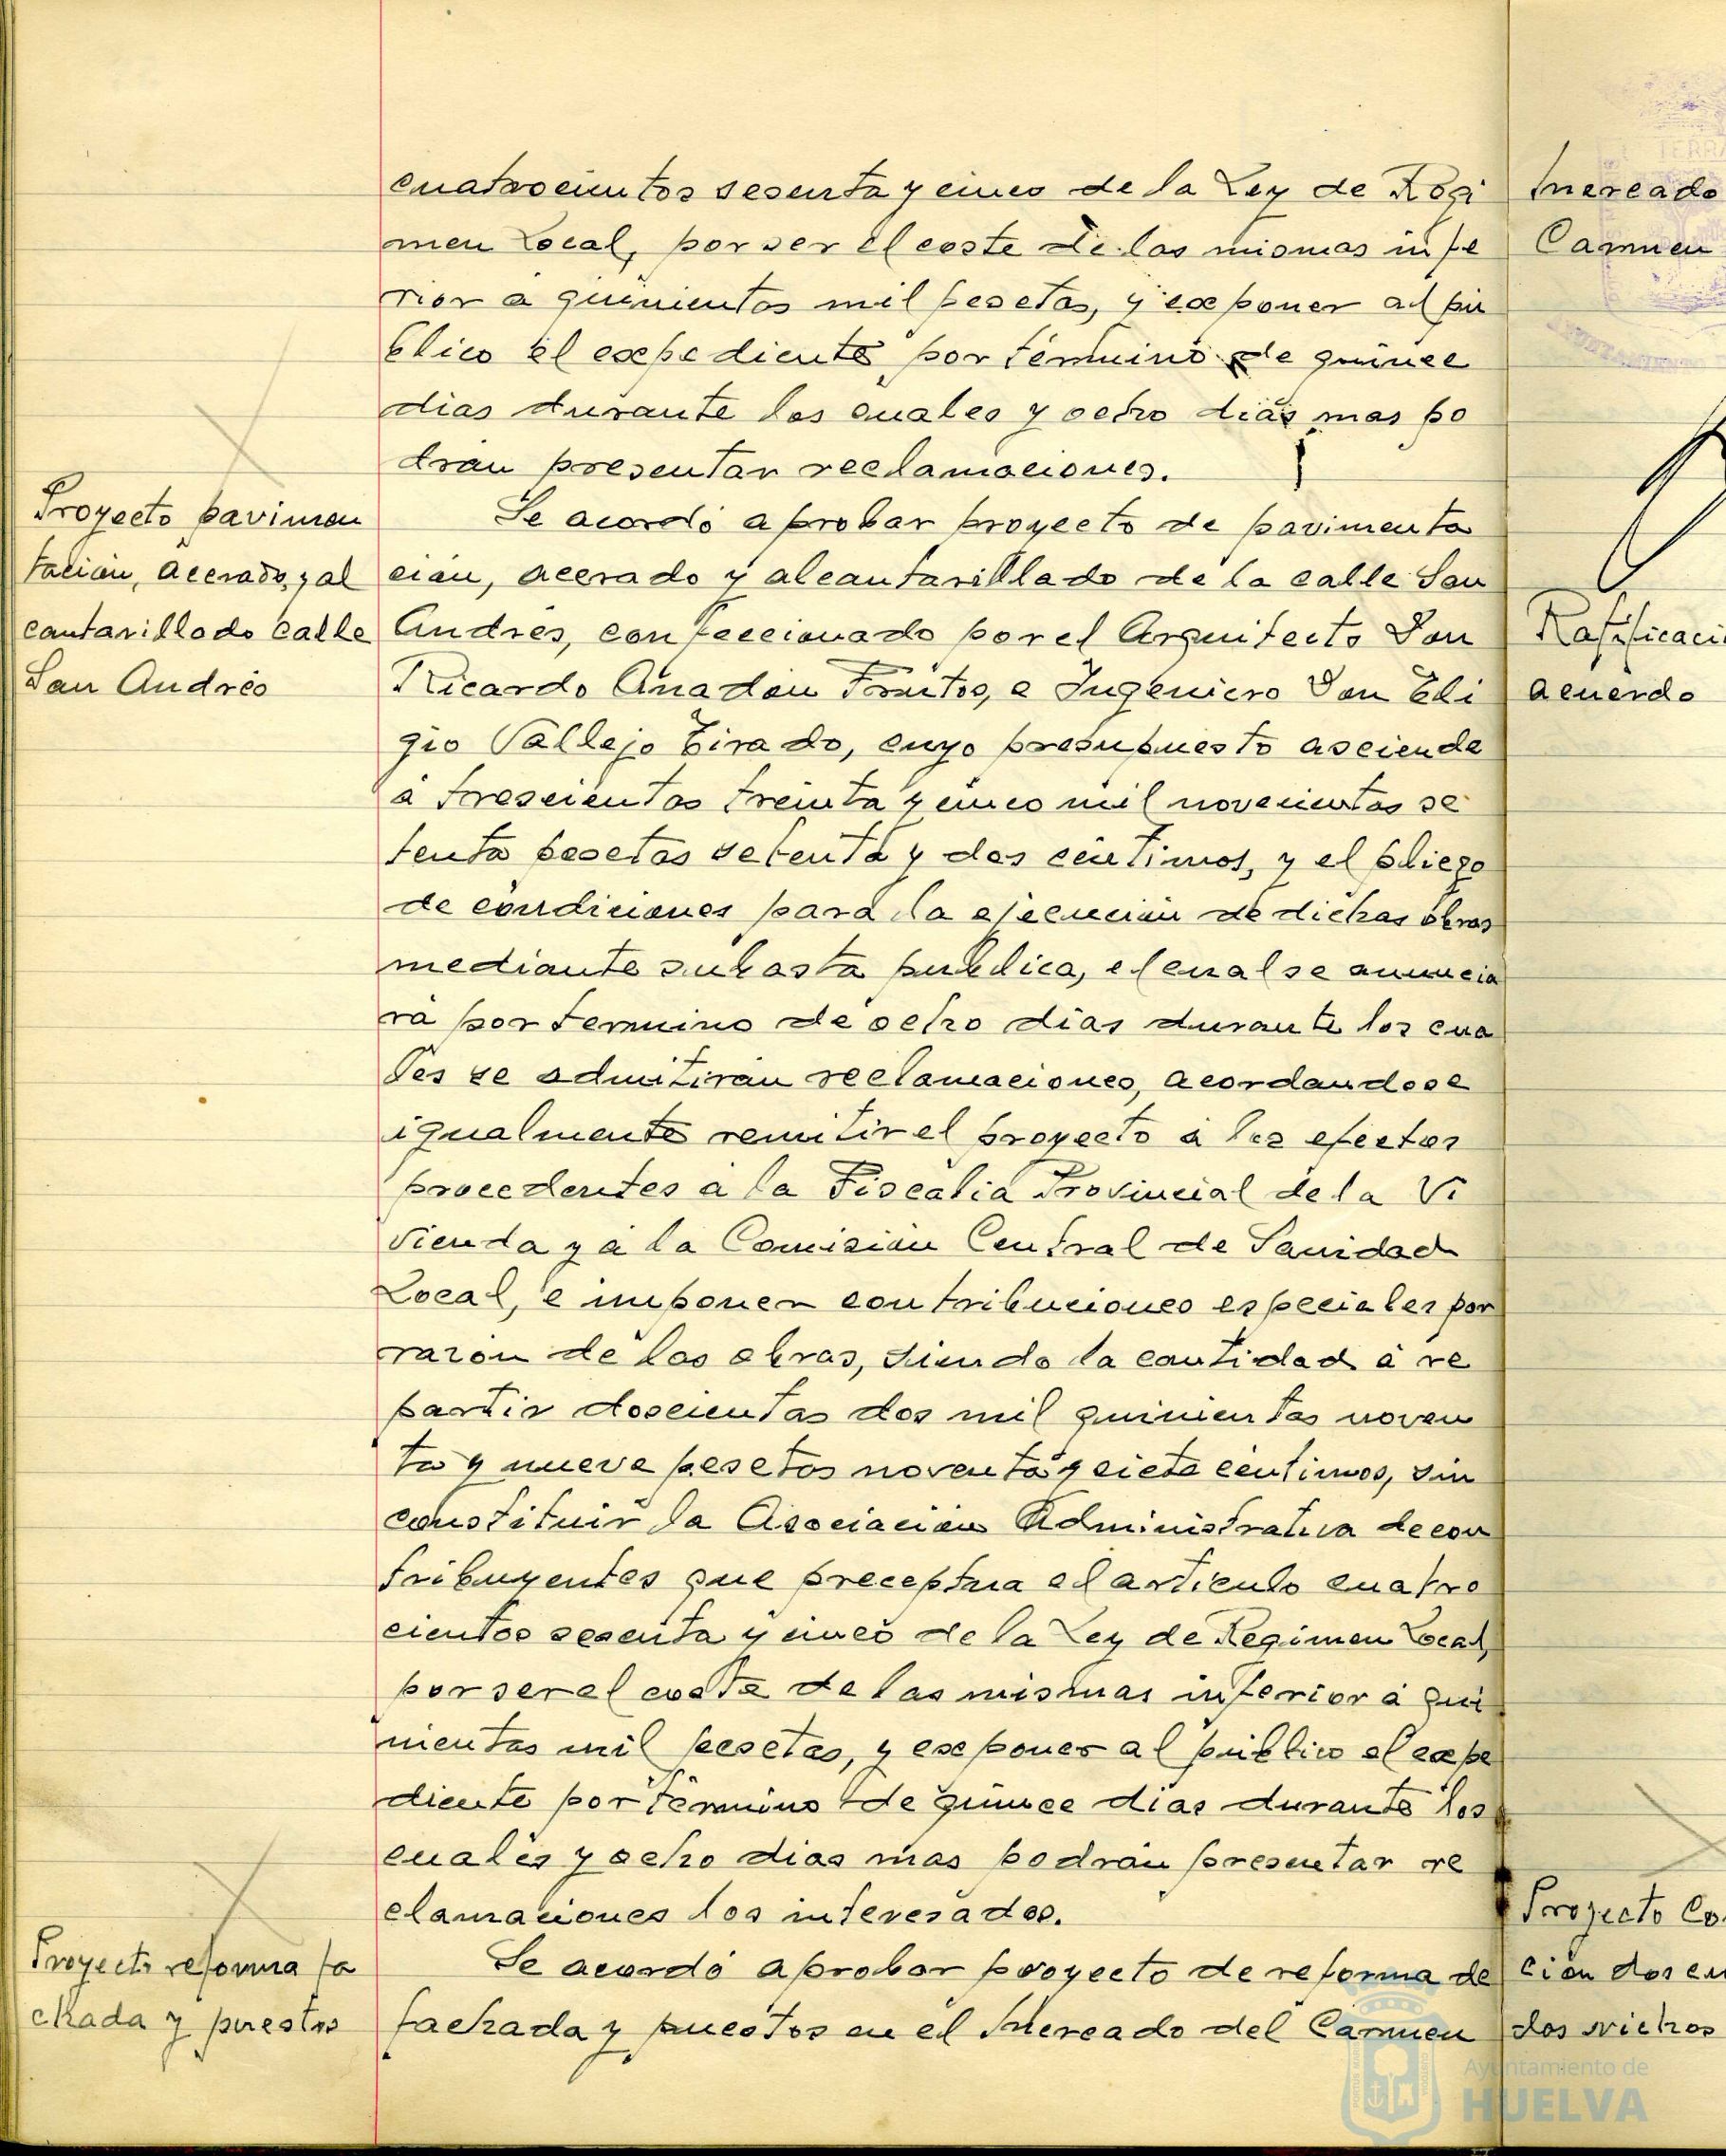 cuatrocientos sesenta y cinco de la Ley de Régi
men Local, por ser el coste de las mismas infe
rior a quinientas mil pesetas, y exponer al pú
blico el expediente por término de quince
dias durante los cuales y ocho dias mas po
drán presentar reclamaciones.
Proyecto pavimen
tación, acerado, y al
cantarillado calle
San Andrés
Se acordó aprobar proyecto de pavimenta
ción, acerado y alcantarillado de la calle San
Andrés, confeccionado por el Arquitecto Don
Ricardo Anadón Frutos, e Ingeniero Don Eli
gio Vallejo Tirado, cuyo presupuesto asciende
á trescientas treinta y cinco mil novecientas se
tenta pesetas setenta y dos céntimos, y el pliego
de condiciones para la ejecución de dichas obras
mediante subasta publica, el cual se anuncia
rá por termino de ocho dias durante los cua
les se admitiran reclamaciones, acordandose
igualmente remitir el proyecto á los efectos
procedentes a la Fiscalia Provincial de la Vi
vienda y a la Comisión Central de Sanidad
Local, e imponer contribuciones especiales por
razón de las obras, siendo la cantidad á re
partir doscientas dos mil quinientas noven
ta y nueve pesetas noventa y siete céntimos, sin
constituir la Asociación Administrativa de con
tribuyentes que preceptua el articulo cuatro
cientos sesenta y cinco de la Ley de Regimen Local,
por ser el coste de las mismas inferior á qui
nientas mil pesetas, y exponer al público el expe
diente por término de quince dias durante los
cuales y ocho dias mas podrán presentar re
clamaciones los interesados.
Proyecto reforma fa
chada y puestos
Se acordó aprobar proyecto de reforma de
fachada y puestos en el Mercado del Carmen
Mercado
Carmen
Ratificaci
acuerdo
Proyecto Co
ción dos cu
dos nichos
Ayuntamiento de
HUELVA